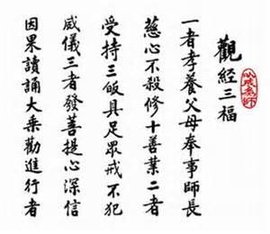 觀經三福
一者孝養父母奉事師長
慈心不殺修十善業二者
受持三皈具足眾戒不犯
威儀三者發菩提心深信
因果讀誦大乘勸進行者